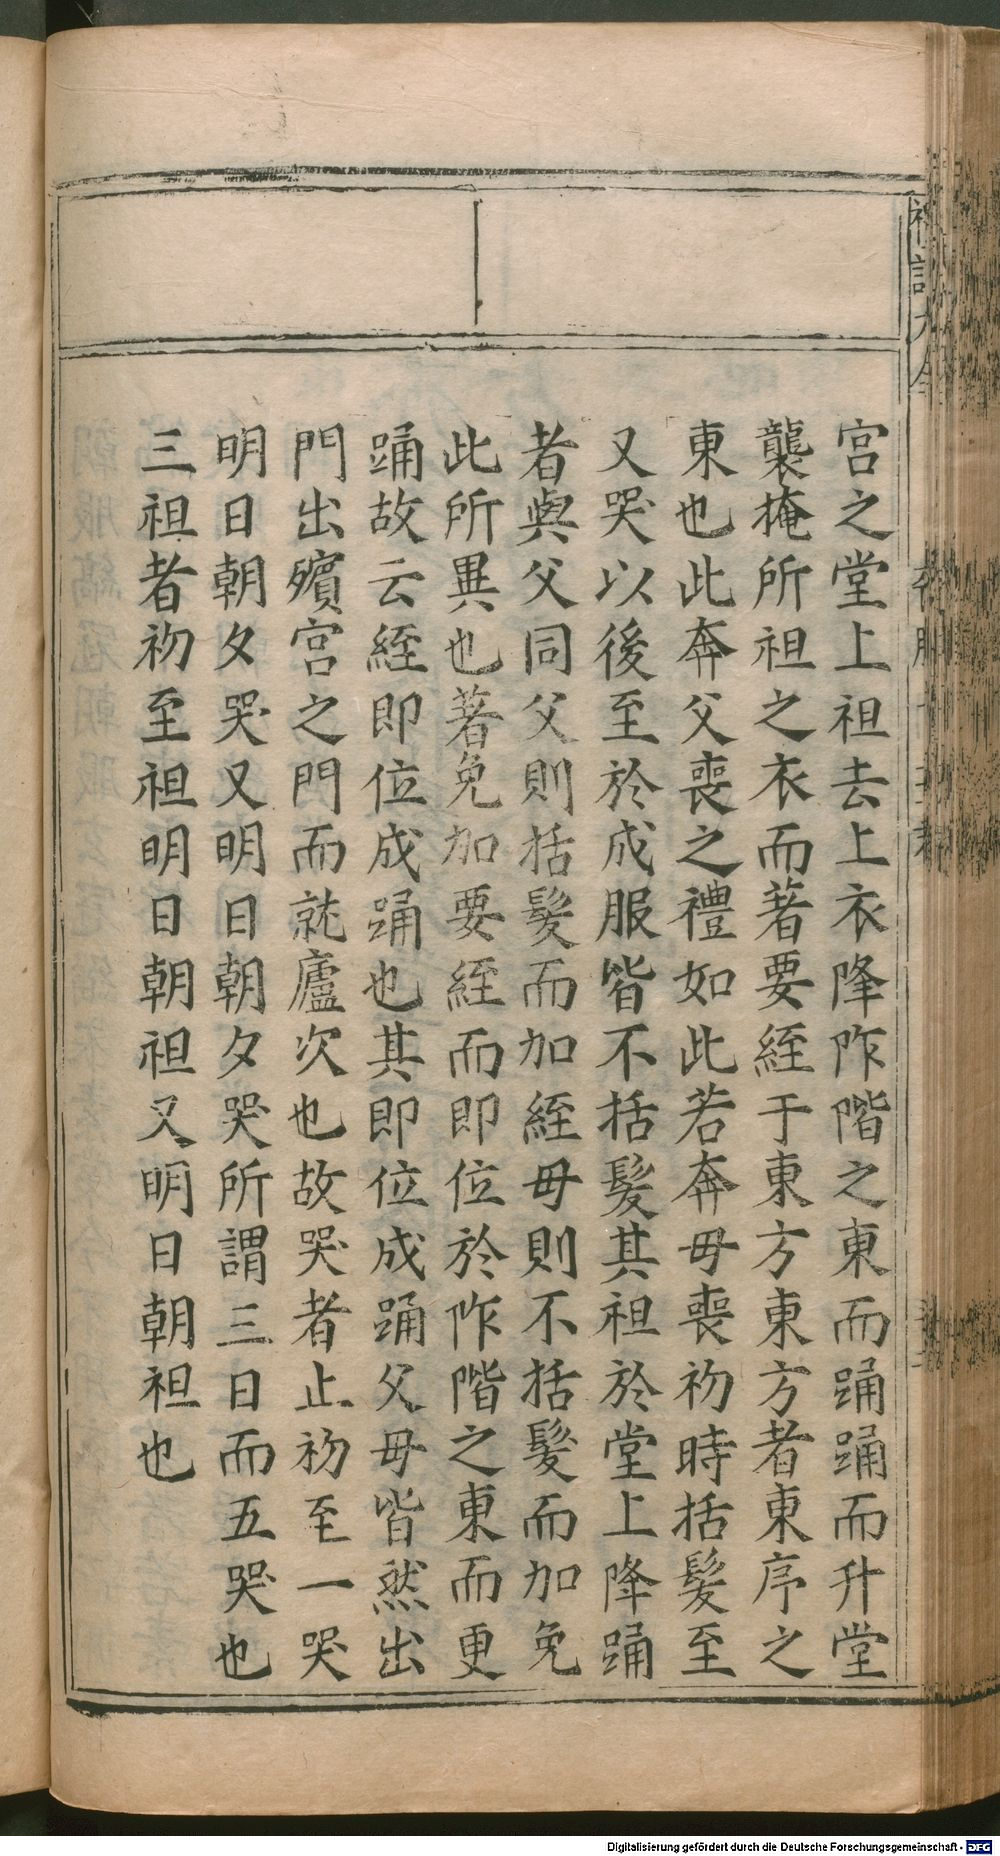 宮之堂上袒去上衣降阼階之東而踊踊而升堂
襲掩所袒之衣而著要絰于東方東方者東序之
東也此奔父喪之禮如此若奔毋喪初時括髮至
又哭以後至於成服皆不括髮其袒於堂上降踊
者與父同父則括髮而加絰毋則不括髮而加免
此所異也著免加要絰而即位於阼階之東而更
踊故云絰即位成踊也其即位成踊父毋皆然出
門出殯宮之門而就廬次也故哭者止初至一哭
明日朝夕哭又明日朝夕哭所謂三日而五哭也
三袒者初至袒明日朝袒又明日朝袒也
Digitalisierung gefördert durch die Deutsche Forschungsgemeinschaft - DFG